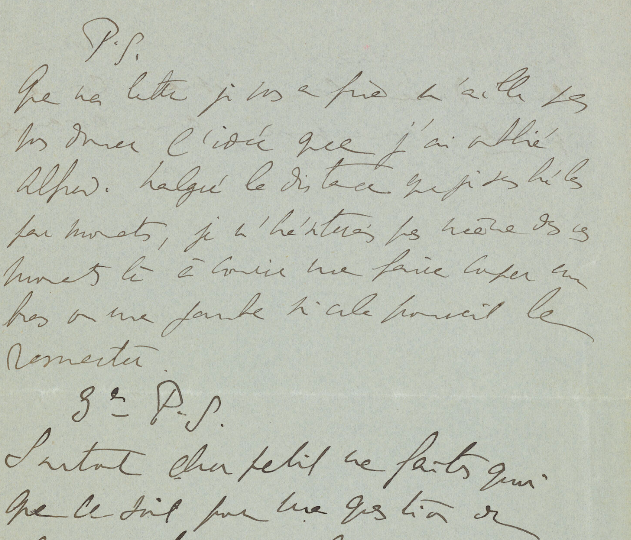 P.S.
Que ma lettre je vous en prie n'aille pas
vous donner l'idée que j'ai oublié
Alfred. Malgré la distance que je sens hélas
par moments, je n'hésiterais pas même dans ces
moments là à courir me faire couper un
bras ou une jambe si cela pouvait le
ressusciter.
3e P.S.
Surtout cher petit ne faites quoi
que ce soit pour une question de